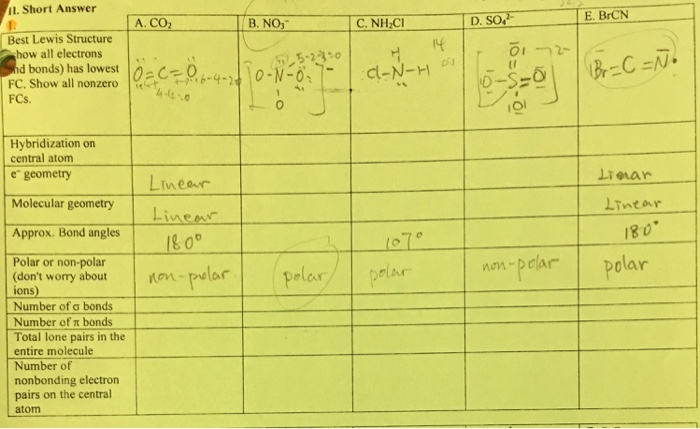 II. Short Answer
A. CO₂
B. NO₃⁻
C. NH₂Cl
D. SO₄²⁻
E. BrCN
Best Lewis Structure
show all electrons
and bonds) has lowest
FC. Show all nonzero
FCs.
O=C=O
6-4-2=0
4-4=0
O-N-O
O
H
Cl-N-H
14
O
O-S=O
O
2-
Br=C=N
Hybridization on
central atom
e⁻ geometry
Linear
Linear
Molecular geometry
Linear
Linear
Approx. Bond angles
180°
107°
180°
Polar or non-polar
(don't worry about
ions)
non-polar
polar
polar
non-polar
polar
Number of σ bonds
Number of π bonds
Total lone pairs in the
entire molecule
Number of
nonbonding electron
pairs on the central
atom